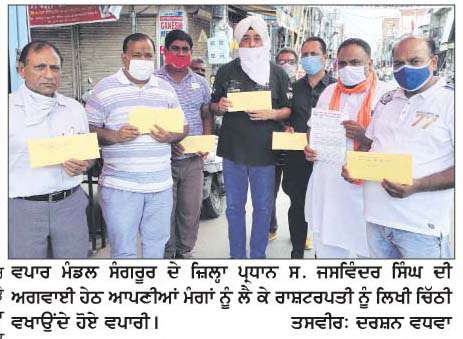 GANESH
77
ਵਪਾਰ ਮੰਡਲ ਸੰਗਰੂਰ ਦੇ ਜ਼ਿਲ੍ਹਾ ਪ੍ਰਧਾਨ ਸ. ਜਸਵਿੰਦਰ ਸਿੰਘ ਦੀ
ਅਗਵਾਈ ਹੇਠ ਆਪਣੀਆਂ ਮੰਗਾਂ ਨੂੰ ਲੈ ਕੇ ਰਾਸ਼ਟਰਪਤੀ ਨੂੰ ਲਿਖੀ ਚਿੱਠੀ
ਵਖਾਉਂਦੇ ਹੋਏ ਵਪਾਰੀ। ਤਸਵੀਰ: ਦਰਸ਼ਨ ਵਧਵਾ